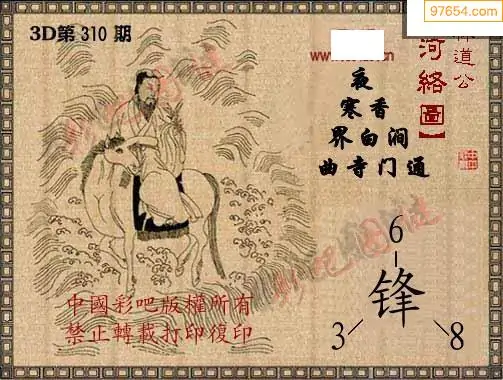 97654.com
3D第 310 期
道公
河絡【圖】
夜
寒香
界白澗
曲寺门通
6
锋
3
8
中國彩吧版權所有
禁止轉載打印復印